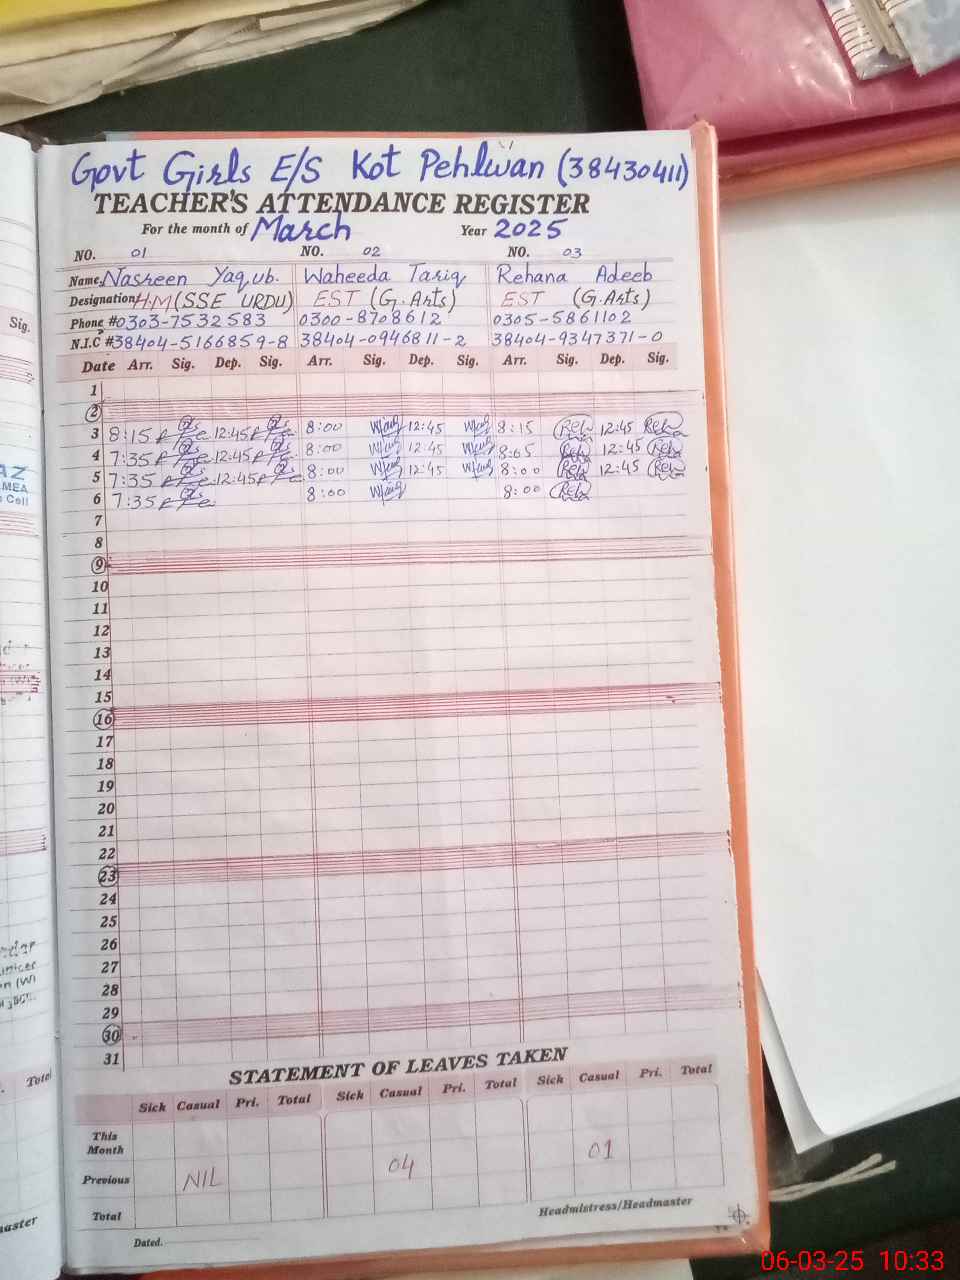 Govt Girls E/S Kot Pehlwan (38430411)
TEACHER'S ATTENDANCE REGISTER
For the month of March Year 2025
NO. 01 NO. 02 NO. 03
Name. Nasreen Yaqub. Waheeda Tariq Rehana Adeeb
Designation H.M (SSE URDU) EST (G.Arts) EST (G.Arts)
Phone # 0303-7532583 0300-8708612 0305-5861102
N.I.C # 38404-5166859-8 38404-0946811-2 38404-9347371-0
Date Arr. Sig. Dep. Sig. Arr. Sig. Dep. Sig. Arr. Sig. Dep. Sig.
1
2
3 8:15 12:45 8:00 12:45 8:15 12:45
4 7:35 12:45 8:00 12:45 8:05 12:45
5 7:35 12:45 8:00 12:45 8:00 12:45
6 7:35 8:00 8:00
7
8
9
10
11
12
13
14
15
16
17
18
19
20
21
22
23
24
25
26
27
28
29
30
31
STATEMENT OF LEAVES TAKEN
Sick Casual Pri. Total Sick Casual Pri. Total Sick Casual Pri. Total
This Month
Previous NIL 04 01
Total
Headmistress/Headmaster
Dated.
Sig.
AZ
MEA
Cell
Total
06-03-25 10:33